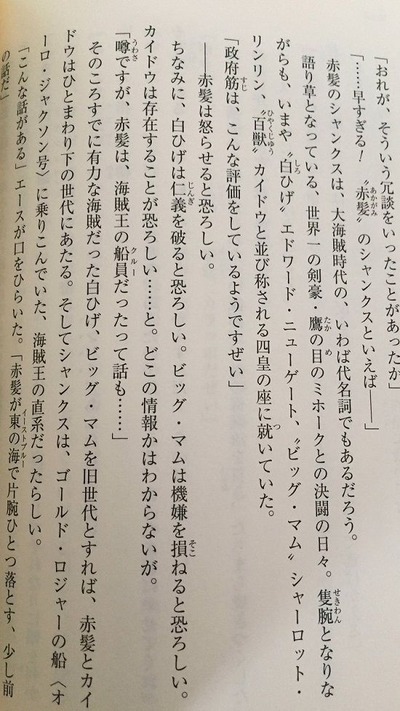 「おれが、そういう冗談をいったことがあったか」
「……早すぎる！ 〝赤髪〟のシャンクスといえば――」
赤髪のシャンクスは、大海賊時代の、いわば代名詞でもあるだろう。
語り草となっている、世界一の剣豪・鷹の目のミホークとの決闘の日々。隻腕となりな
がらも、いまや〝白ひげ〟エドワード・ニューゲート、〝ビッグ・マム〟シャーロット・
リンリン、〝百獣〟カイドウと並び称される四皇の座に就いていた。
「政府筋は、こんな評価をしているようですぜい」
――赤髪は怒らせると恐ろしい。
ちなみに、白ひげは仁義を破ると恐ろしい。ビッグ・マムは機嫌を損ねると恐ろしい。
カイドウは存在することが恐ろしい……と。どこの情報かはわからないが。
「噂ですが、赤髪は、海賊王の船員だったって話も……」
そのころすでに有力な海賊だった白ひげ、ビッグ・マムを旧世代とすれば、赤髪とカイ
ドウはひとまわり下の世代にあたる。そしてシャンクスは、ゴールド・ロジャーの船〈オ
ーロ・ジャクソン号〉に乗りこんでいた、海賊王の直系だったらしい。
「こんな話がある」エースが口をひらいた。「赤髪が東の海で片腕ひとつ落とす、少し前
の話だ」